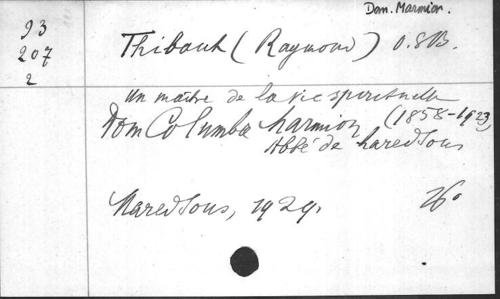 Dom. Marmion.
93
207
2
Thibaut (Raymond) O.S.B.
Un maître de la vie spirituelle
Dom Columba Marmion (1858-1923)
Abbé de Maredsous
Maredsous, 1929.
26º